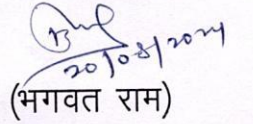 20/08/2024
(भगवत राम)